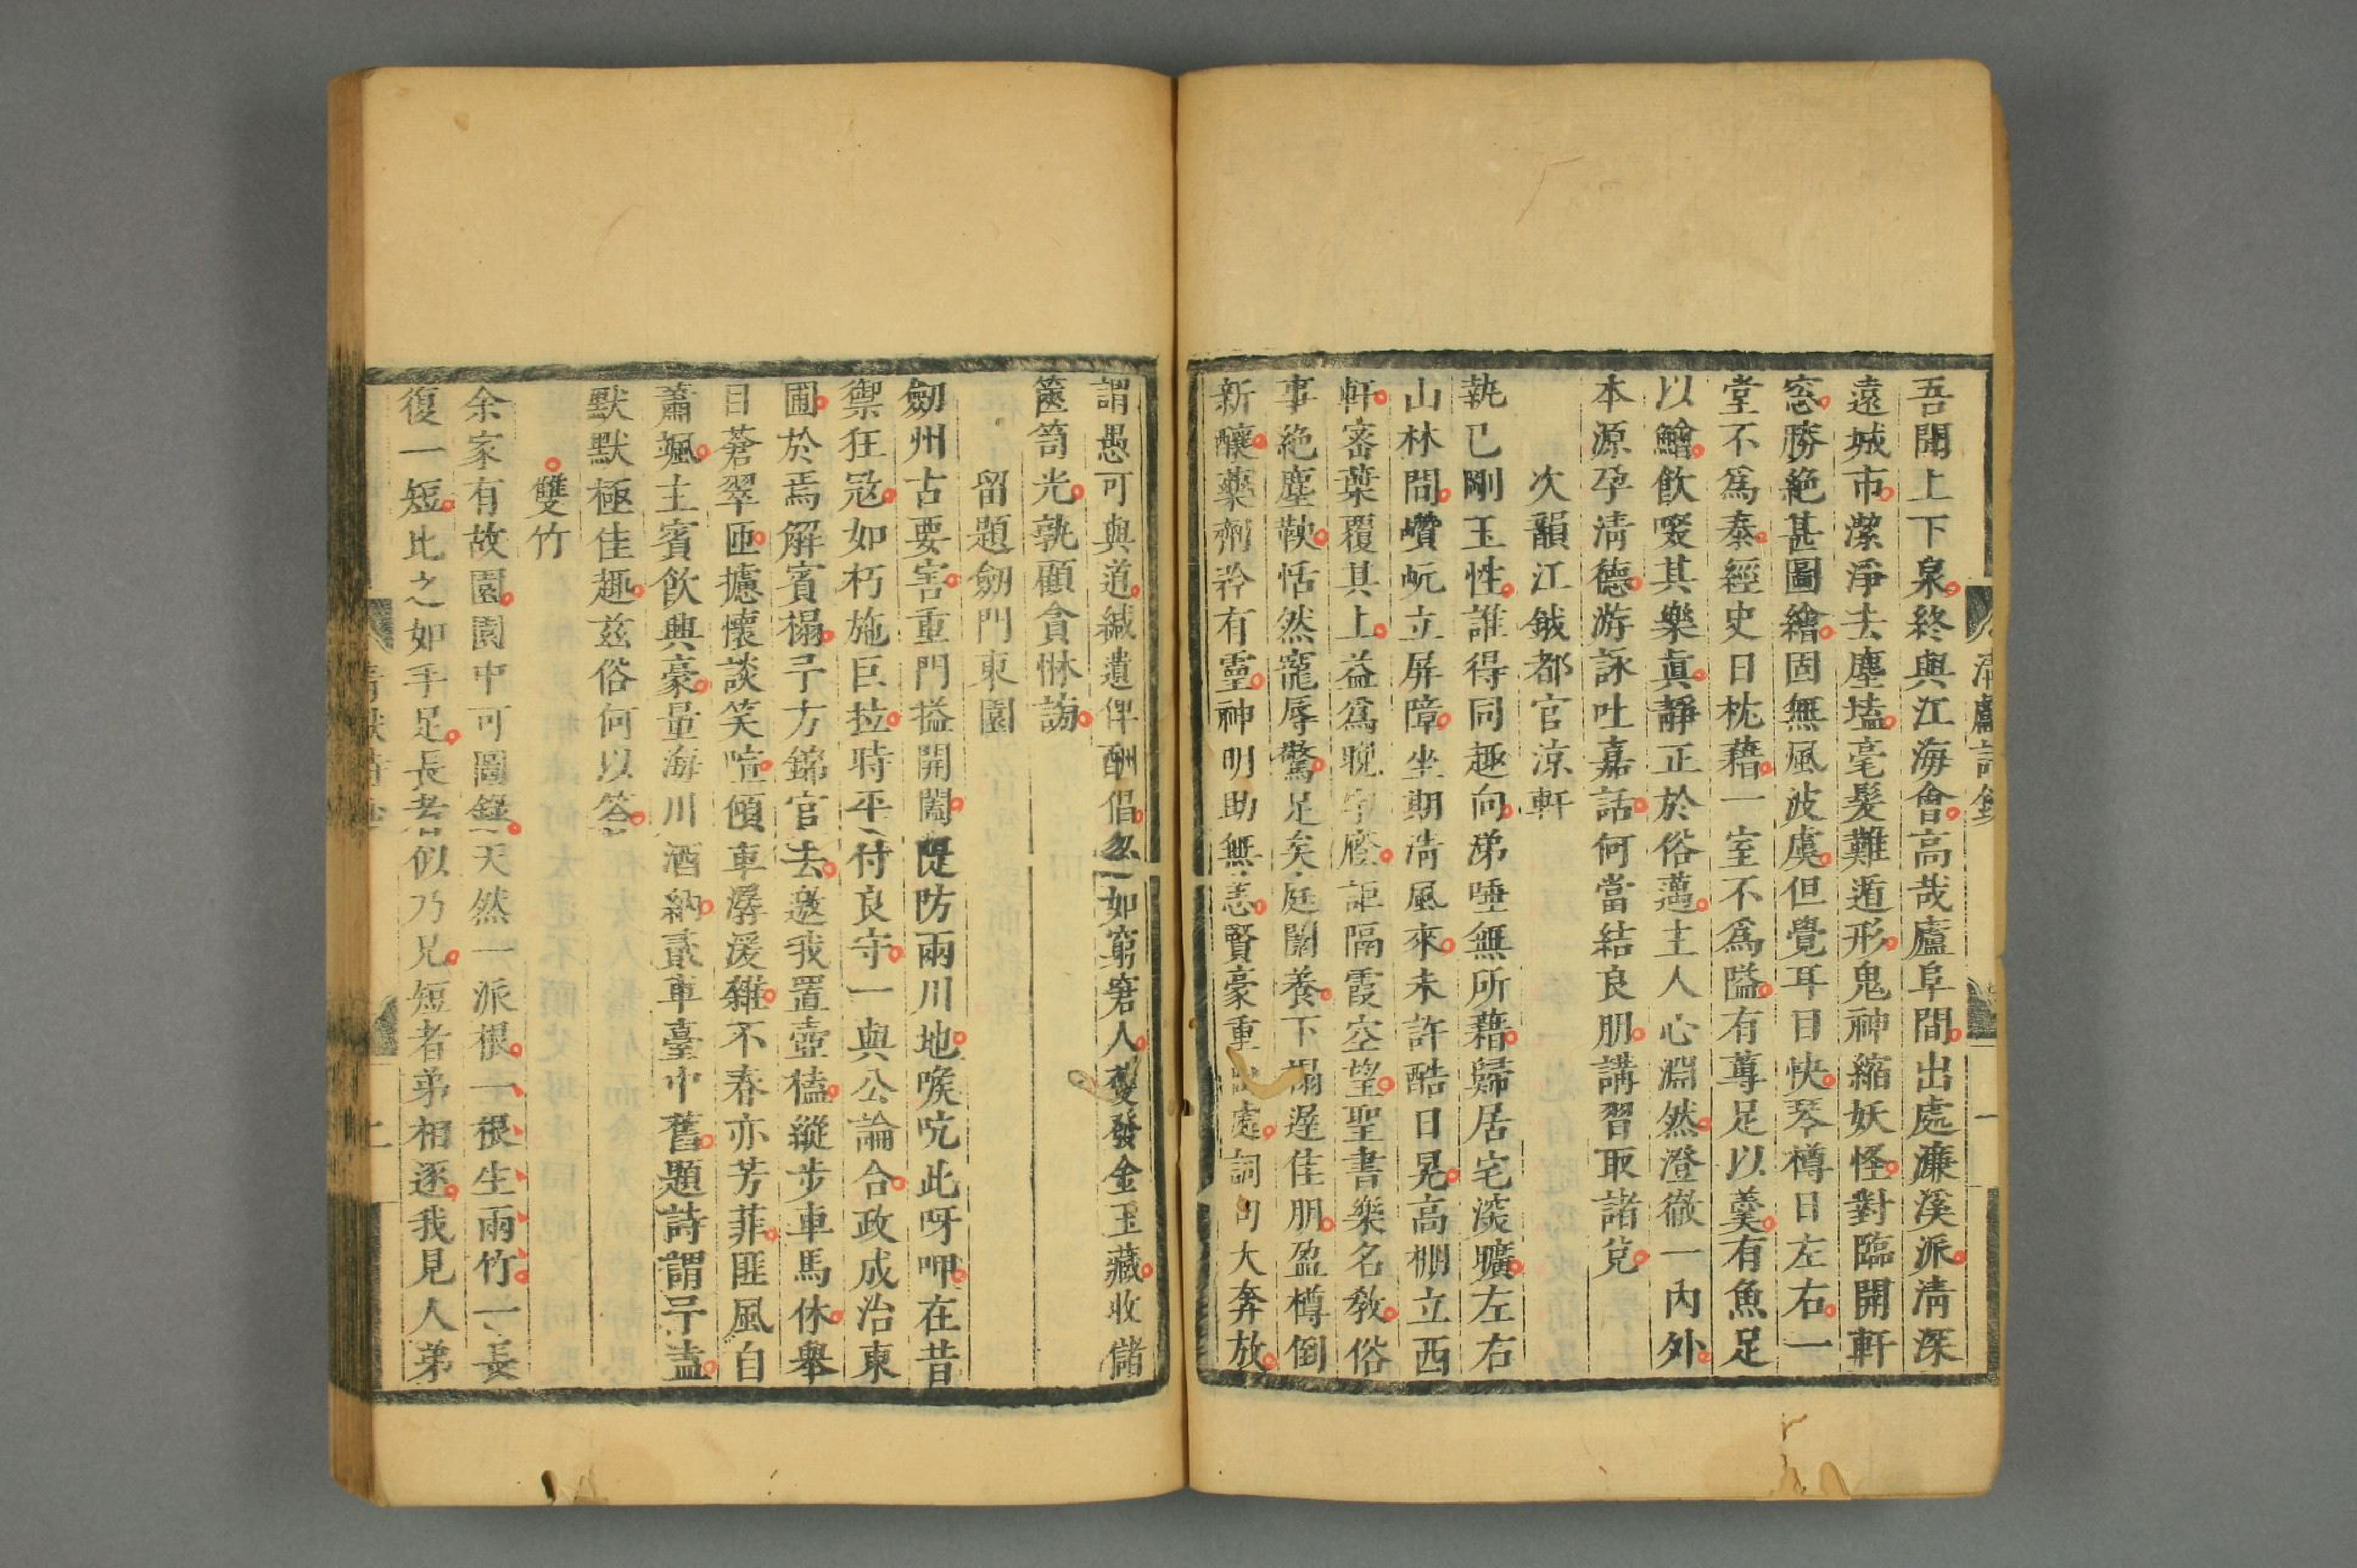 吾聞上下泉終與江海會高哉廬阜間出處濂溪派淸深
遠城市潔淨去塵𡏖毫髮難遁形鬼神縮妖怪對臨開軒
窓勝絶甚圖繪固無風波虞但覺耳目快琴樽日左右一
堂不爲泰經史日枕藉一室不爲隘有蓴足以羹有魚足
以鱠飮啜其樂眞靜正於俗邁主人心淵然澄徹一內外
本源孕淸德游詠吐嘉話何當結良朋講習取諸兌
次韻江鉞都官涼軒
執已剛玉性誰得同趣向涕唾無所藉歸居宅淡曠左右
山林間巑岏立屏障坐期淸風來未許酷日晃高棚立西
軒密葉覆其上益爲晚 詎隔霞空望聖書樂名敎俗
事絶塵鞅恬然寵辱驚足矣庭闈養下榻遲佳朋盈樽倒
新釀藥劑矜有靈神明助無恙賢豪重 處詞句大奔放
謂愚可與道緘遺俾酬倡忽如窮窘人 發金玉藏收儲
篋笥光孰顧貪惏謗
留題劒門東園
劒州古要害重門搤開闔隄防兩川地喉吭此呀呷在昔
禦狂冦如朽施巨拉時平付良守一與公論合政成治東
圃於焉解賓榻予方錦官去邀我置壺榼縱步車馬休舉
目蒼翠匝攄懷談笑喧傾車潺湲雜不春亦芳菲匪風自
蕭颯主賓飮興豪量海川酒納貳車臺中舊題詩謂予盍
默默極佳趣茲俗何以答
雙竹
余家有故園園中可圖錄天然一派根一根生兩竹一長
復一短比之如手足長者似乃兄短者弟相逐我見人弟
淸獻詩鈔
一
二